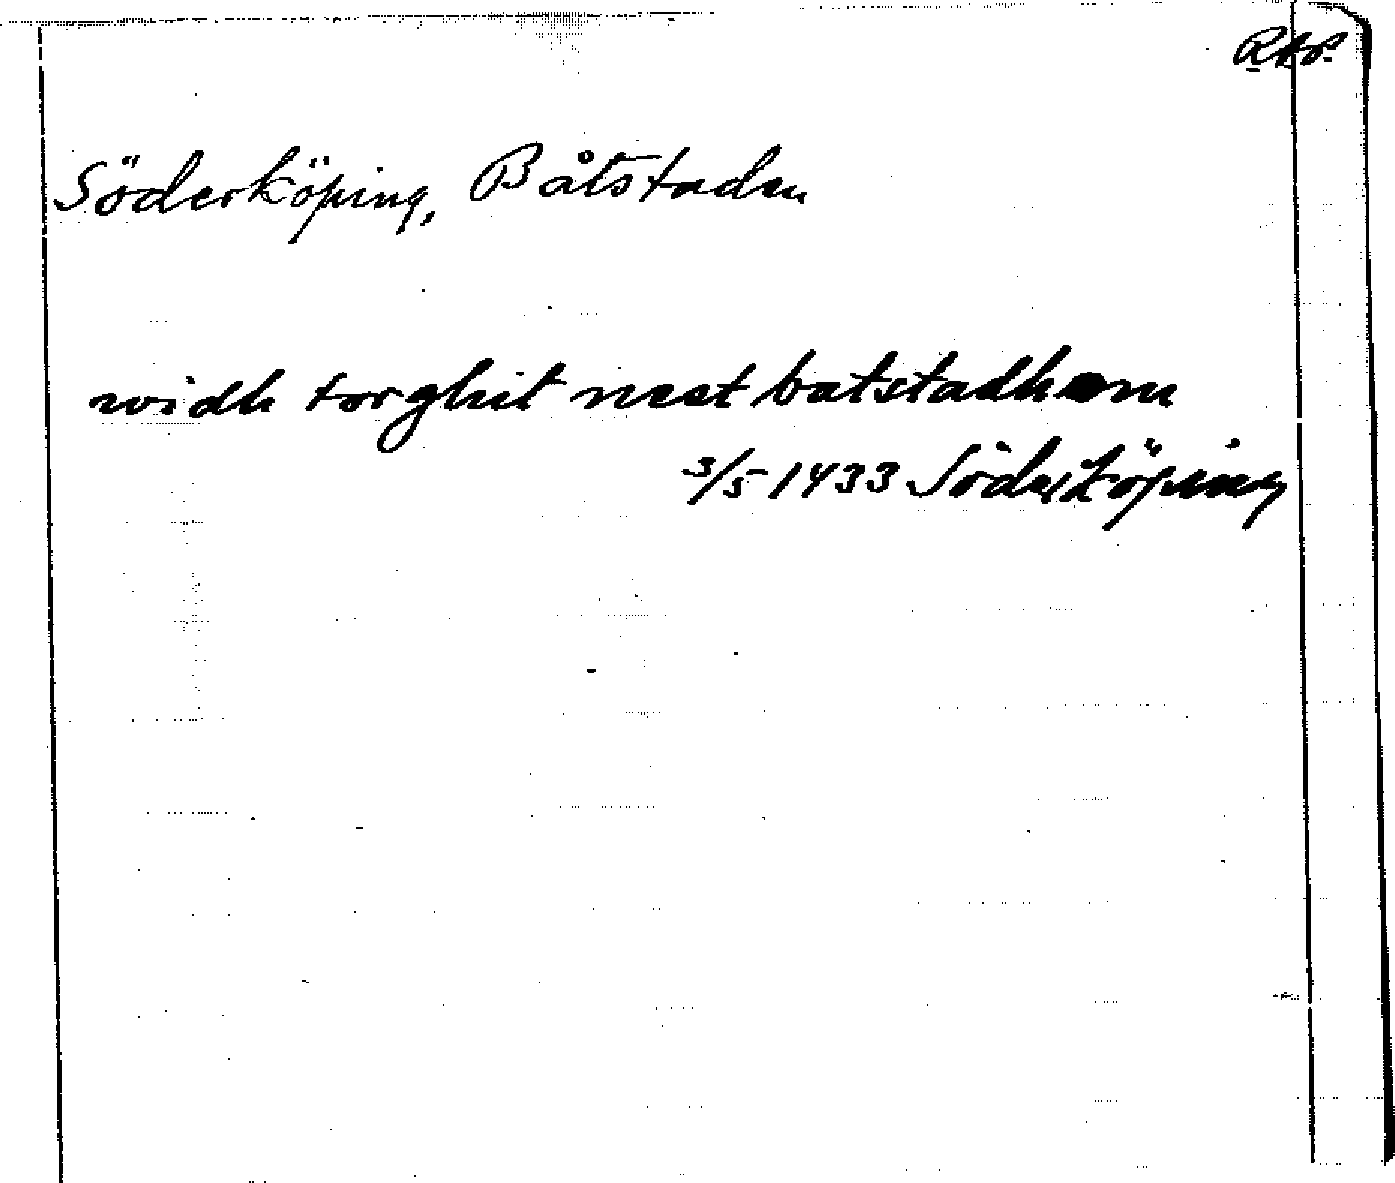 RAP.
Söderköping, Båtstaden
widh torghit nest batstadhom
3/5 1433 Söderköping